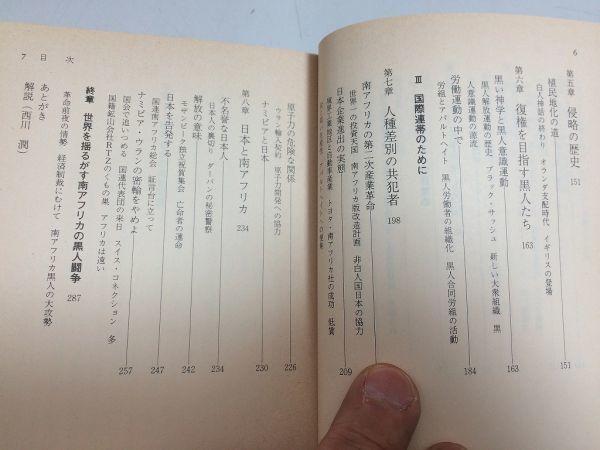 6
第五章 侵略の歴史 151
植民地化の道 151
白人神話の終わり オランダ支配時代 イギリスの登場
第六章 復権を目指す黒人たち 163
黒い神学と黒人意識運動 163
黒人解放運動の歴史 ブラック・サッシュ 新しい大衆組織 黒
人意識運動の激流
労働運動の中で 184
労組とアパルトヘイト 黒人労働者の組織化 黒人合同労組の活動
Ⅲ 国際連帯のために
第七章 人種差別の共犯者 198
南アフリカの第二次産業革命
世界一の投資天国 南アフリカ版改造計画 非白人国日本の協力
日本企業進出の実態 209
境界工業地区と自動車産業 トヨタ・南アフリカ社の成功 低賃
7 目次
原子力の危険な関係 226
ウラン輸入契約 原子力開発への協力
ナミビアと日本 230
第八章 日本と南アフリカ 234
不名誉な日本人
日本人の裏切り ダーバンの秘密警察
解放の意味 242
モザンビーク独立祝賀集会 亡命者の運命
日本を告発する 247
国連南アフリカ総会 証言台に立って
ナミビア・ウランの密輸をやめよ 257
国会で追いつめる 国連代表団の来日 スイス・コネクション 多
国籍鉱山会社RTZのくもの巣 アフリカは遠い
終章 世界を揺るがす南アフリカの黒人闘争 287
革命前夜の情勢 経済制裁にむけて 南アフリカ黒人の大攻勢
あとがき
解説(西川 潤)